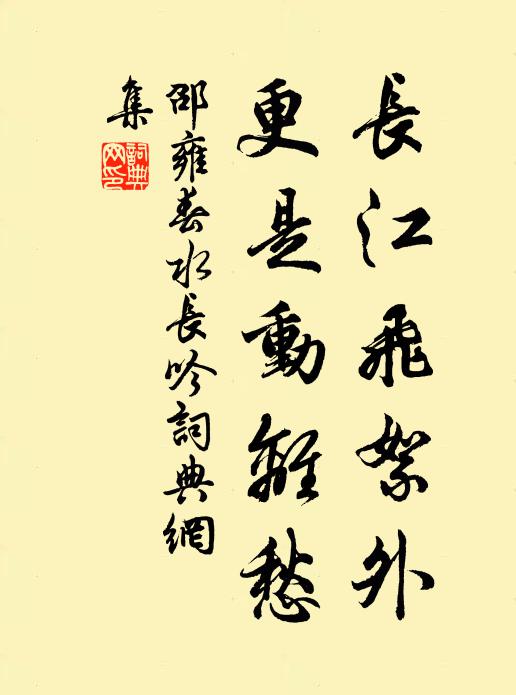 長江飛絮外
更是動離愁
邵雍春水長吟詞典網
集
詞典
网印